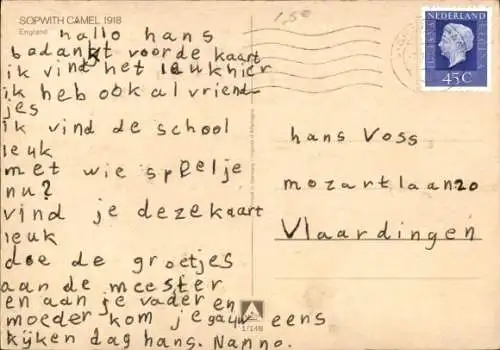 SOPWITH CAMEL 1918
England
1,50
NEDERLAND
45 C
hallo hans
bedankt voorde kaart
ik vind het leuk hier
ik heb ook al vriend-
jes
ik vind de school
leuk
met wie speelje
nu?
vind je dezekaart
leuk
doe de groetjes
aan de meester
en aan je vader en
moeder kom je gauw eens
kijken dag hans. Nanno.
hans Voss
mozartlaan20
Vlaardingen
1/148